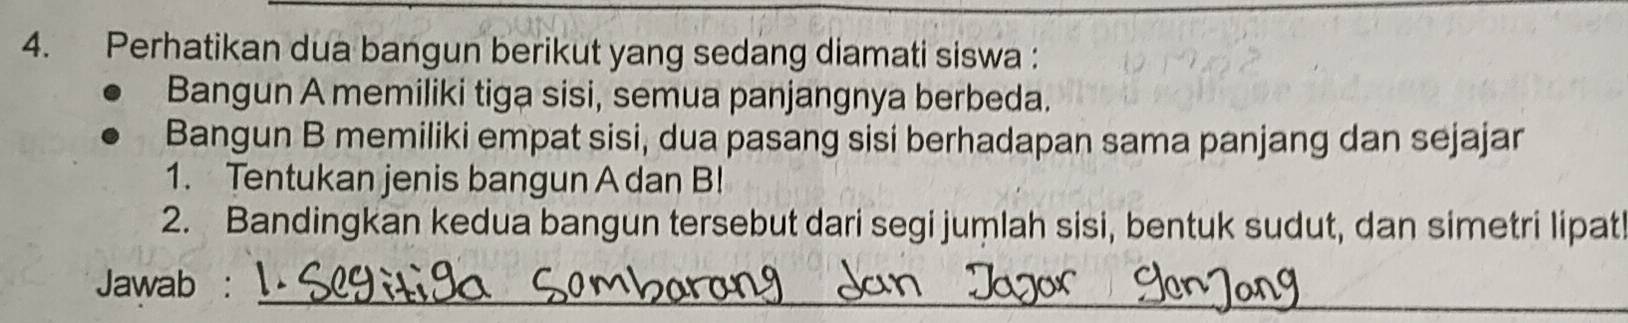 4. Perhatikan dua bangun berikut yang sedang diamati siswa :
• Bangun A memiliki tiga sisi, semua panjangnya berbeda.
• Bangun B memiliki empat sisi, dua pasang sisi berhadapan sama panjang dan sejajar
1. Tentukan jenis bangun A dan B!
2. Bandingkan kedua bangun tersebut dari segi jumlah sisi, bentuk sudut, dan simetri lipat!
Jawab : 1. Segitiga Sombarang dan Jajar genjang